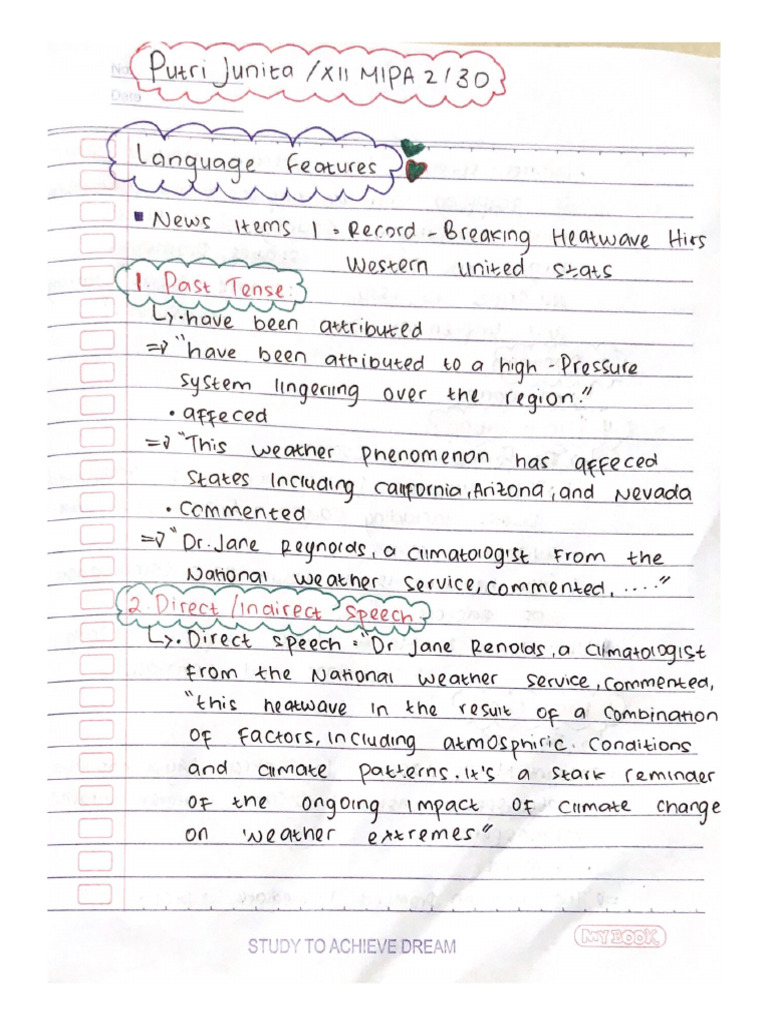 No
Date
Putri Junita / XII MIPA 2 / 30
Language Features
▪ News Items 1 : Record - Breaking Heatwave Hits
Western United Stats
1. Past Tense :
↳ • have been attributed
=> "have been attributed to a high - Pressure
system lingering over the region."
• affeced
=> "This weather phenomenon has affeced
States including California, Arizona, and Nevada
• Commented
=> "Dr. Jane Reynolds, a climatologist from the
National weather service, commented, ...."
2. Direct / Indirect Speech :
↳ • Direct speech = "Dr Jane Renolds, a climatologist
from the National weather service, commented,
"this heatwave in the result of a combination
of factors, including atmosphiric. conditions
and climate patterns. it's a stark reminder
of the ongoing impact of climate change
on weather extremes"
STUDY TO ACHIEVE DREAM
MY BOOK